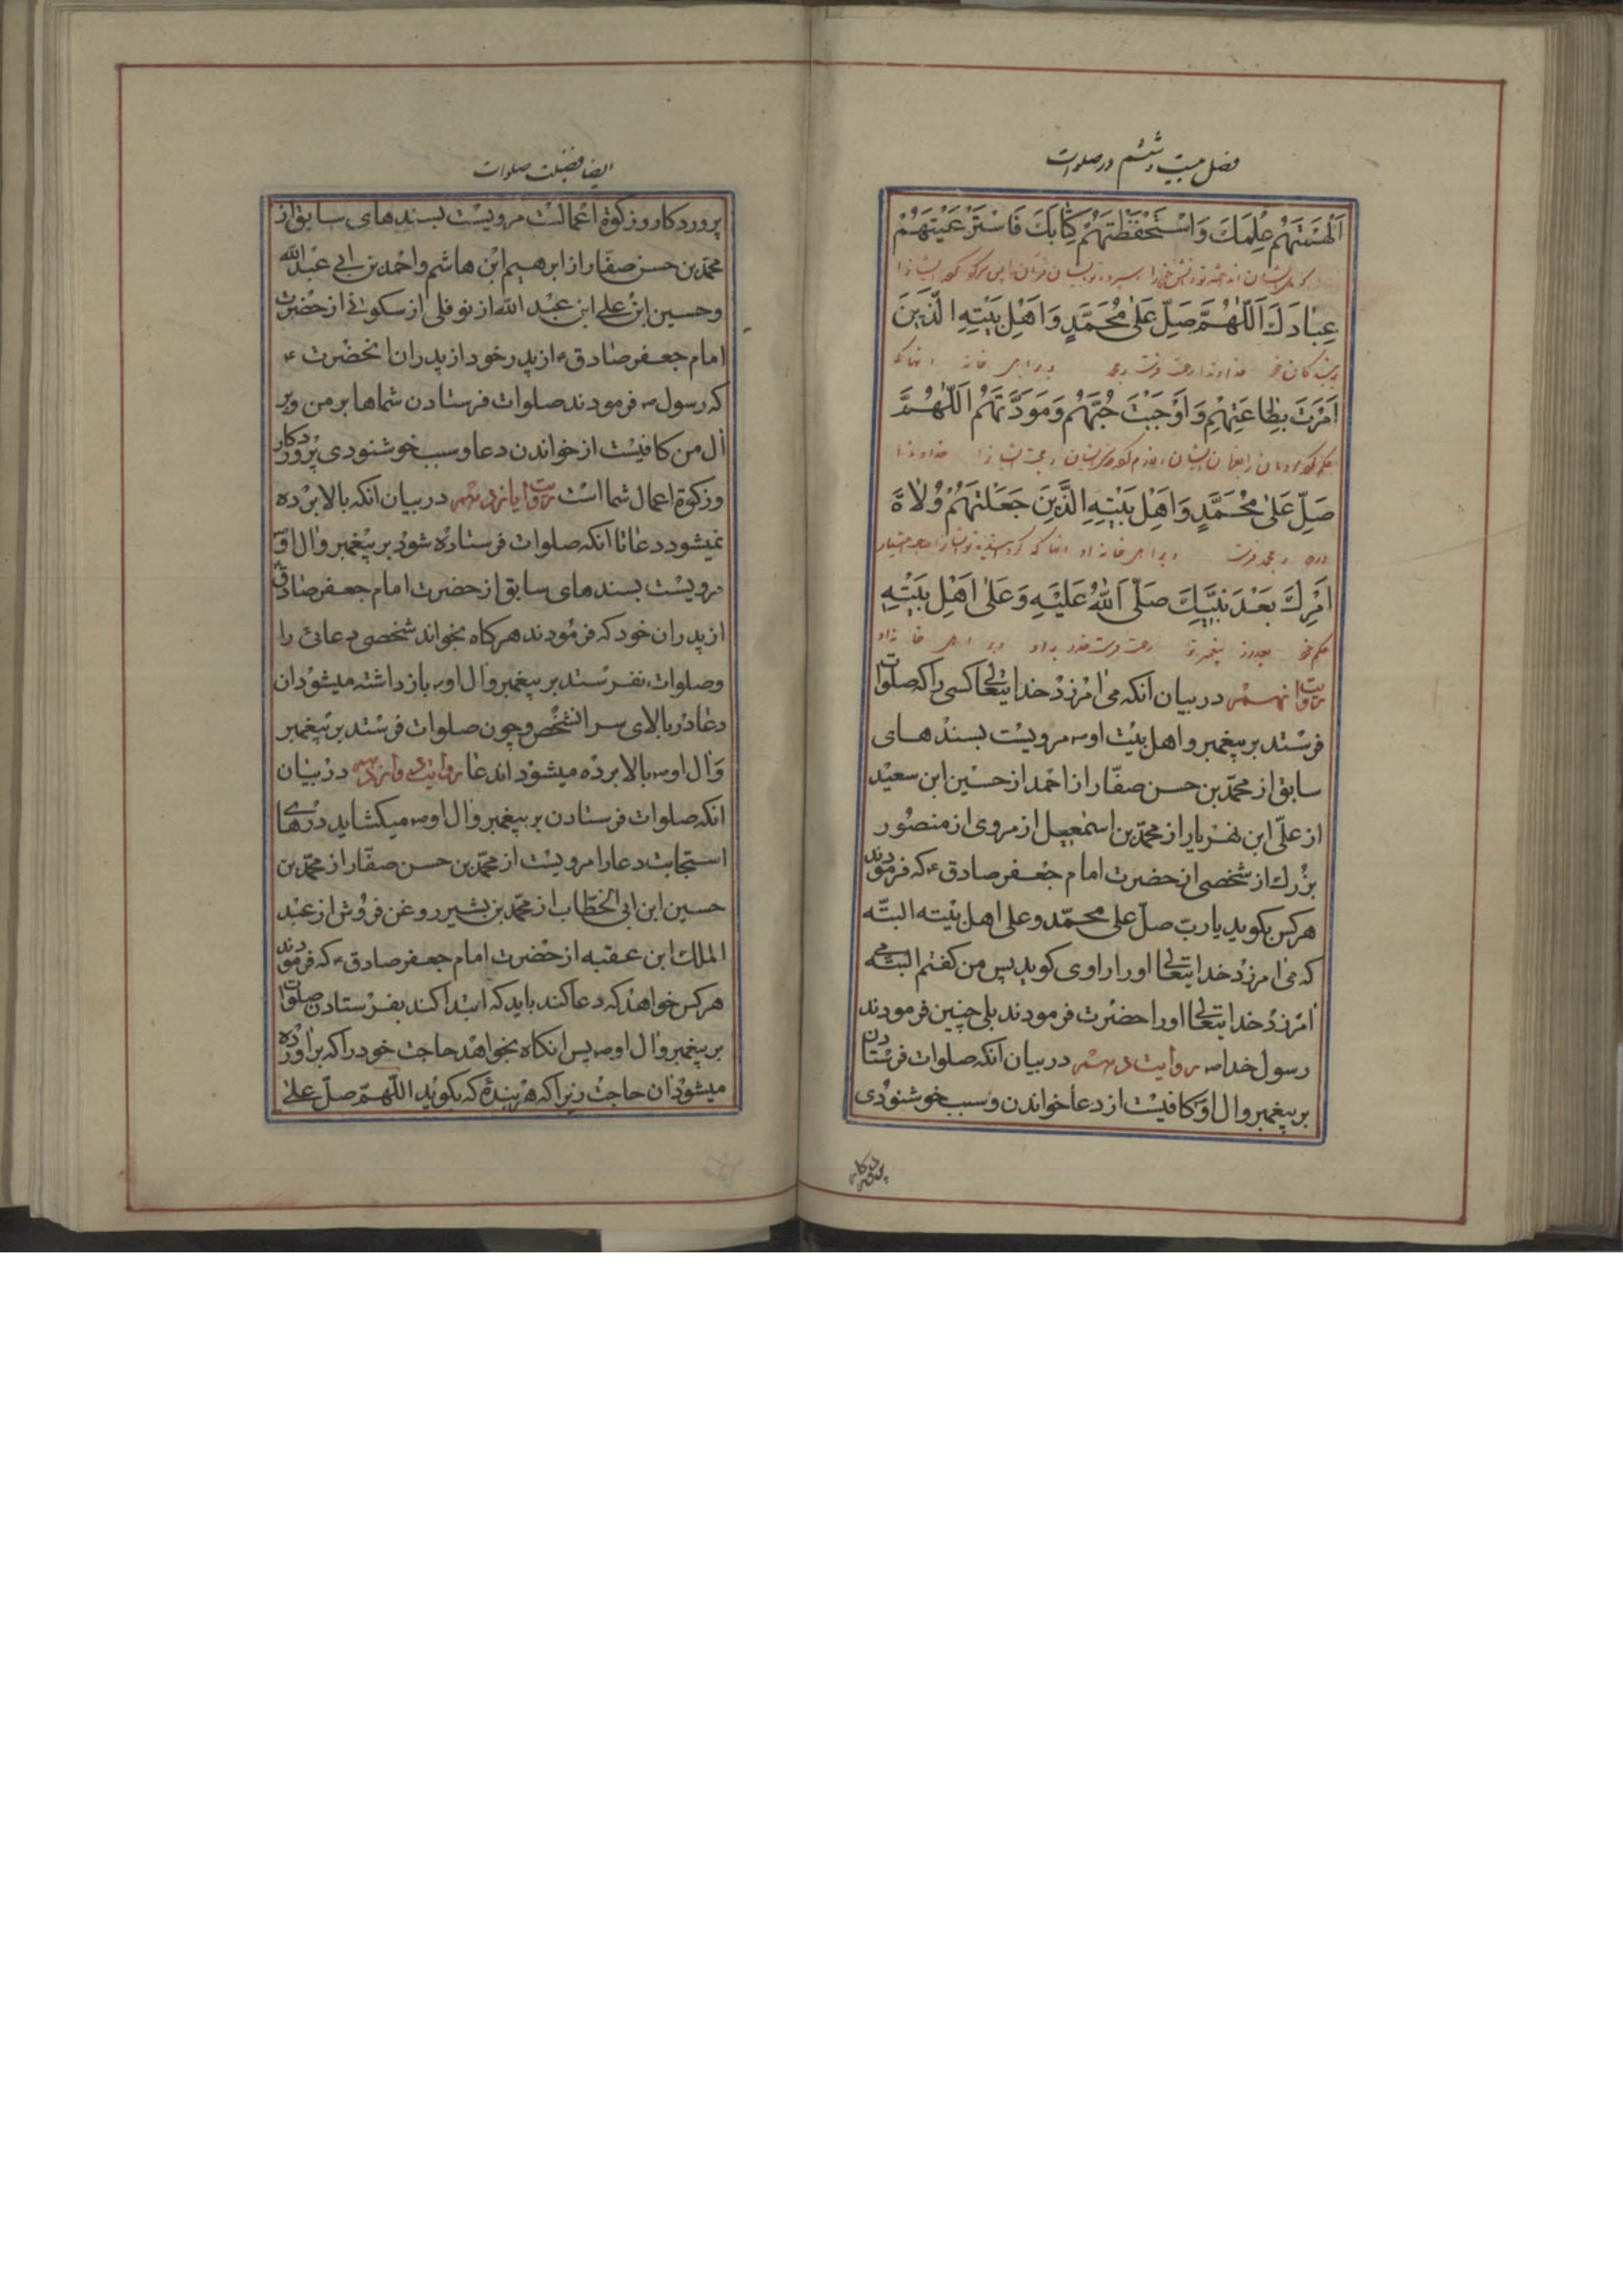 فصل بیست و ششم در صلوات
اَلْهَمْتَهُمْ عِلْمَكَ وَاسْتَحْفَظْتَهُمْ كِتَابَكَ فَاسْتَرْعَيْتَهُمْ
عِبَادَكَ اَللّٰهُمَّ صَلِّ عَلىٰ مُحَمَّدٍ وَاَهْلِ بَيْتِهِ الَّذِينَ
بر بندکان خود خداوندا رحمت فرست بر محمد و بر اهل خانه انها که
اَمَرْتَ بِطَاعَتِهِمْ وَاَوْجَبْتَ حُبَّهُمْ وَمَوَدَّتَهُمْ اَللّٰهُمَّ
صَلِّ عَلىٰ مُحَمَّدٍ وَاَهْلِ بَيْتِهِ الَّذِينَ جَعَلْتَهُمْ وُلَاةَ
اَمْرِكَ بَعْدَ نَبِيِّكَ صَلَّى اللّٰهُ عَلَيْهِ وَعَلىٰ اَهْلِ بَيْتِهِ
حکم خود بعد از پیغمبر تو رحمت فرستد خدا بر او و بر اهل خانه او
روایت نهم در بیان انکه می امرزد خدایتعالی کسی را که صلوات
فرستد بر پیغمبر و اهل بیت او ص مرویست بسندهای
سابق از محمد بن حسن صفّار از احمد از حسین ابن سعید
از علی ابن مهزیار از محمد بن اسمعیل از مروی از منصور
بزرك از شخصی از حضرت امام جعفر صادق ع که فرمودند
هر کس بکوید یا ربّ صلّ علی محمّد و علی اهل بیته البتّه
که می امرزد خدایتعالی او را راوی کوید پس من کفتم البته می
امرزد خدایتعالی او را حضرت فرمودند بلی چنین فرمودند
رسول خدا ص روایت دهم در بیان انکه صلوات فرستادن
بر پیغمبر و ال او کافیست از دعا خواندن و سبب خوشنودی
ایضا فضیلت صلوات
پروردکار و زکوة اعمالست مرویست بسندهای سابق از
محمد بن حسن صفار از ابرهیم ابن هاشم و احمد بن ابی عبد الله
و حسین ابن علی ابن عبد الله از نوفلی از سکونی از حضرت
امام جعفر صادق ع از پدر خود از پدران انحضرت ع
که رسول ص فرمودند صلوات فرستادن شماها بر من و بر
ال من کافیست از خواندن دعا و سبب خوشنودی پروردکار
و زکوة اعمال شما است روایت یازدهم در بیان انکه بالا برده
نمیشود دعا تا انکه صلوات فرستاده شود بر پیغمبر و ال او ص
مرویست بسندهای سابق از حضرت امام جعفر صادق ع
از پدران خود که فرمودند هرکاه بخواند شخصی دعائی را
و صلوات نفرستد بر پیغمبر و ال او ص باز داشته میشود ان
دعا در بالای سر انشخص و چون صلوات فرستد بر پیغمبر
و ال او ص بالا برده میشود اندعا روایت دوازدهم در بیان
انکه صلوات فرستادن بر پیغمبر و ال او ص میکشاید درهای
استجابت دعا را مرویست از محمد بن حسن صفّار از محمد بن
حسین ابن ابی الخطّاب از محمد بن بشیر روغن فروش از عبد
الملك ابن عقبه از حضرت امام جعفر صادق ع که فرمودند
هر کس خواهد که دعا کند باید که ابتدا کند بفرستادن صلوات
بر پیغمبر و ال او ص پس انکاه بخواهد حاجت خود را که براورده
میشود ان حاجت زیرا که هر بندۀ که بکوید اللّهمّ صلّ علی